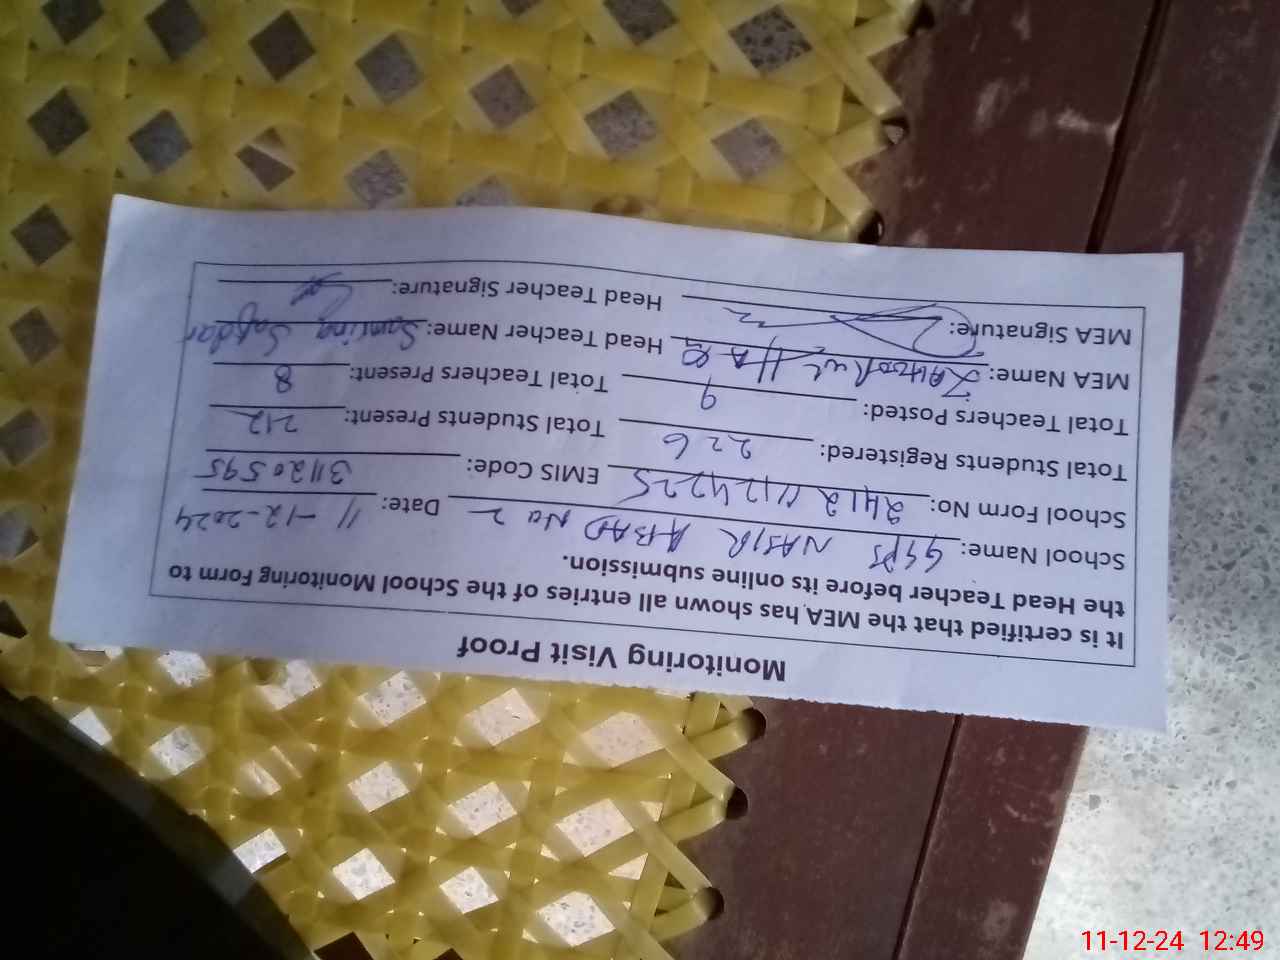 Monitoring Visit Proof
It is certified that the MEA has shown all entries of the School Monitoring Form to
the Head Teacher before its online submission.
School Name: GGPS NASIR ABAD No 2 Date: 11-12-2024
School Form No: EMIS Code: 31120595
Total Students Registered: 226 Total Students Present: 212
Total Teachers Posted: 9 Total Teachers Present: 8
MEA Name: Head Teacher Name: Safdar
MEA Signature: Head Teacher Signature:
11-12-24 12:49